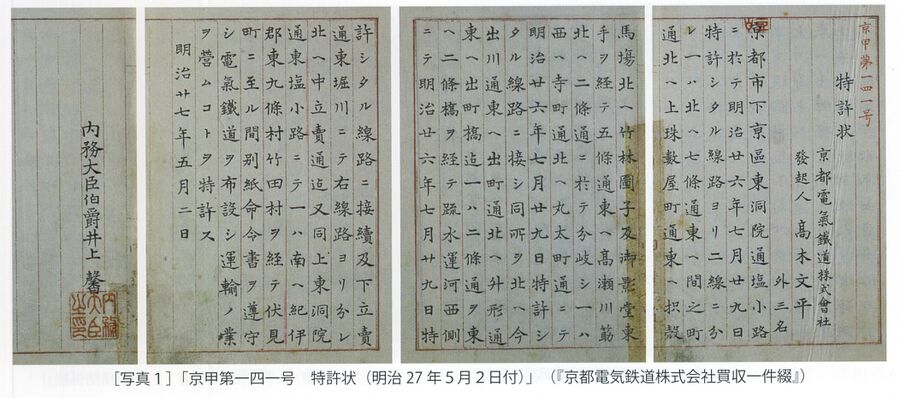 京甲第一四一号
特許状
京都電氣鐵道株式會社
發起人 髙木文平
外三名
京都市下京區東洞院通塩小路
ニ於テ明治廿六年七月廿九日
特許シタル線路ヨリ二線ニ分
レ一ハ北ヘ七條通東ヘ間之町
通北ヘ上珠數屋町通東ヘ枳殼
馬塲北ヘ竹林圖子及御影堂東
手ヲ経テ五條通東ヘ髙瀬川筋
北ヘ二條通ニ於テ分岐シ一ハ
西ヘ寺町通北ヘ丸太町通ニテ
明治廿六年七月廿九日特許シ
タル線路ニ接シ同所ヲ北ヘ今
出川通東ヘ出町通北ヘ升形通
東ヘ出町橋迠一ハ二條通ヲ東
ヘ二條橋ヲ経テ疏水運河西側
ニテ明治廿六年七月廿九日特
許シタル線路ニ接續及下立賣
通東堀川ニテ右線路ヨリ分レ
北ヘ中立賣通迠又同上東洞院
通東塩小路ニテ一ハ南ヘ紀伊
郡東九條村竹田村ヲ経テ伏見
町ニ至ル間別紙命令書ヲ遵守
シ電氣鐵道ヲ布設シ運輸ノ業
ヲ營ムコトヲ特許ス
明治廿七年五月二日
内務大臣伯爵井上 馨
内務大臣之印
［写真1］「京甲第一四一号 特許状（明治27年5月2日付）」（『京都電気鉄道株式会社買収一件綴』）